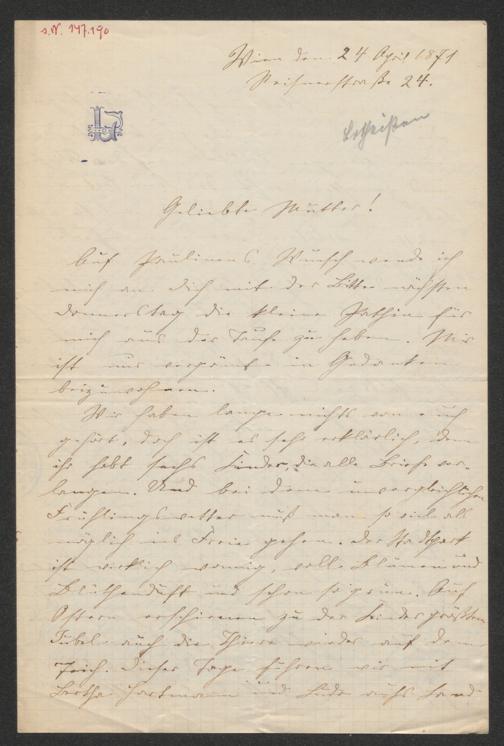 s.N. 147.190
Wien den 24 April 1871
Reisnerstraße 24.
Geliebte Mutter!
Auf Paulinens Wunsch wende ich
mich an Dich mit der Bitte nächsten
Donnerstag die kleine Pathin für
mich aus der Taufe zu heben. Mir
ist nur vergönnt in Gedanken
beizuwohnen.
Wir haben lange nichts von euch
gehört, doch ist es sehr erklärlich, denn
ihr habt sechs Kinder, die alle Briefe ver-
langen. Und bei dem unvergleichlichen
Frühlingswetter muß man so viel als
möglich ins Freie gehen. Der Stadtpark
ist wirklich wonnig, volle Blumen und
Blüthenduft und schon so grün. Auf
Ostern erschienen zu der Kinder größten
Jubel auch die Thiere wieder auf dem
Teich. Dieser Tage fuhren wir mit
Bertha Hartmann und aufs Land